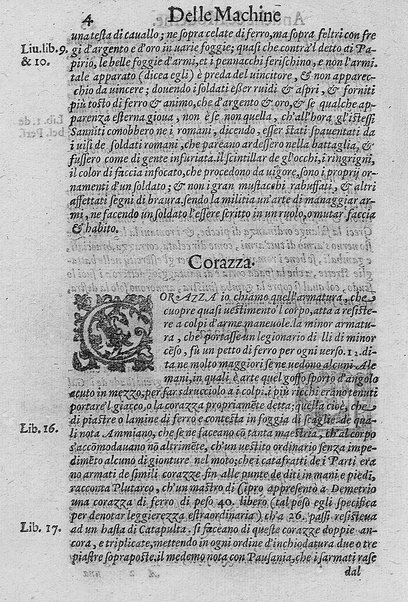 4 Delle Machine
una testa di cauallo; ne sopra celate di ferro, ma sopra feltri con fre
Liu. lib. 9. gi d'argento e d'oro in uarie foggie; quasi che contra'l detto di Pa-
& 10. pirio, le belle foggie d'armi, et i pennacchi ferischino, e non l'armi.
tale apparato (dice egli) è preda del uincitore, & non apparec-
chio da uincere; douendo i soldati esser ruidi & aspri, & forniti
più tosto di ferro & animo, che d'argento & oro, & se qualche ap-
parenza esterna gioua, non è se non quella, ch'all'hora gl'istessi
Sanniti conobbero ne i romani, dicendo, esser stati spauentati da
i uisi de soldati romani, che pareano ardessero nella battaglia, &
fussero come di gente infuriata. il scintillar de gl'occhi, i ringrigni,
il color di faccia infocato, che procedono da uigore, sono i proprij or-
namenti d'un soldato; & non i gran mustacchi rabuffati, & altri
affettati segni di braura. sendo la militia un'arte di managgiar ar-
mi, ne facendo un soldato l'essere scritto in un ruolo, o mutar faccia
& habito.
Corazza.
CORAZZA io chiamo quell'armatura, che
cuopre quasi uestimento l corpo, atta a resiste-
re a colpi d'arme maneuole. la minor armatu-
ra, che portasse un legionario di lli di minor
cẽso, fù un petto di ferro per ogni verso. 1. di-
ta ne molto maggiori se ne uedono alcuni Ale
mani, in quali è arte quel goffo sporto d'angolo
acuto in mezzo, per far sdrucciolo a i colpi. i più ricchi erano tenuti
portare'l giacco, o la corazza propriamẽte detta; quella cioè, che
di piastre o lamine di ferro e contesta in foggia di scaglie, de qua-
Lib. 16. li nota Ammiano, che se ne faceano cõ tanta maestria, ch'al corpo
s'accõmodauano nõ altrimẽte, ch'un uestito ordinario senza impe-
dimẽto alcuno di gionture nel moto; che i catafratti de i Parti era
no armati de simili corazze sin alle punte de diti in mani e piedi,
racconta Plutarco, ch'un mastro di Cipro appresentò a Demetrio
una corazza di ferro di peso 40. libero (tal peso egli specifica
per denotar leggierezza estraordinaria) ch'a 26. passi resisteua
Lib. 17. ad un hasta di Catapulta. si faceano di queste corazze doppie an-
cora, e triplicate, mettendo in ogni ordine d'inchiodatura due o tre
piastre sopraposte. il medemo nota con Pausania, che i sarmati rase
dal